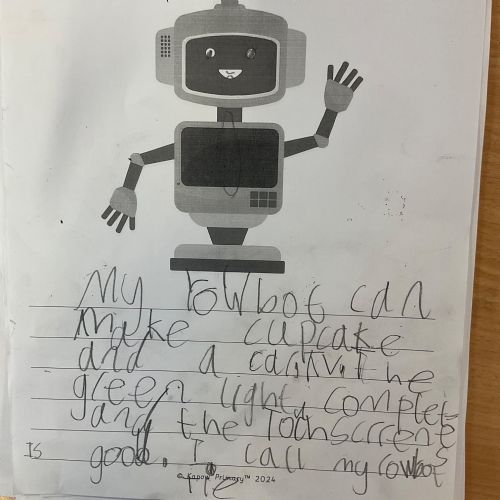 My rowbot can
make cupcake
and a can,t the
green light, complet
and the Tochscrrens
Is good. I call my rowbot
© Kapow Primary™ 2024
He